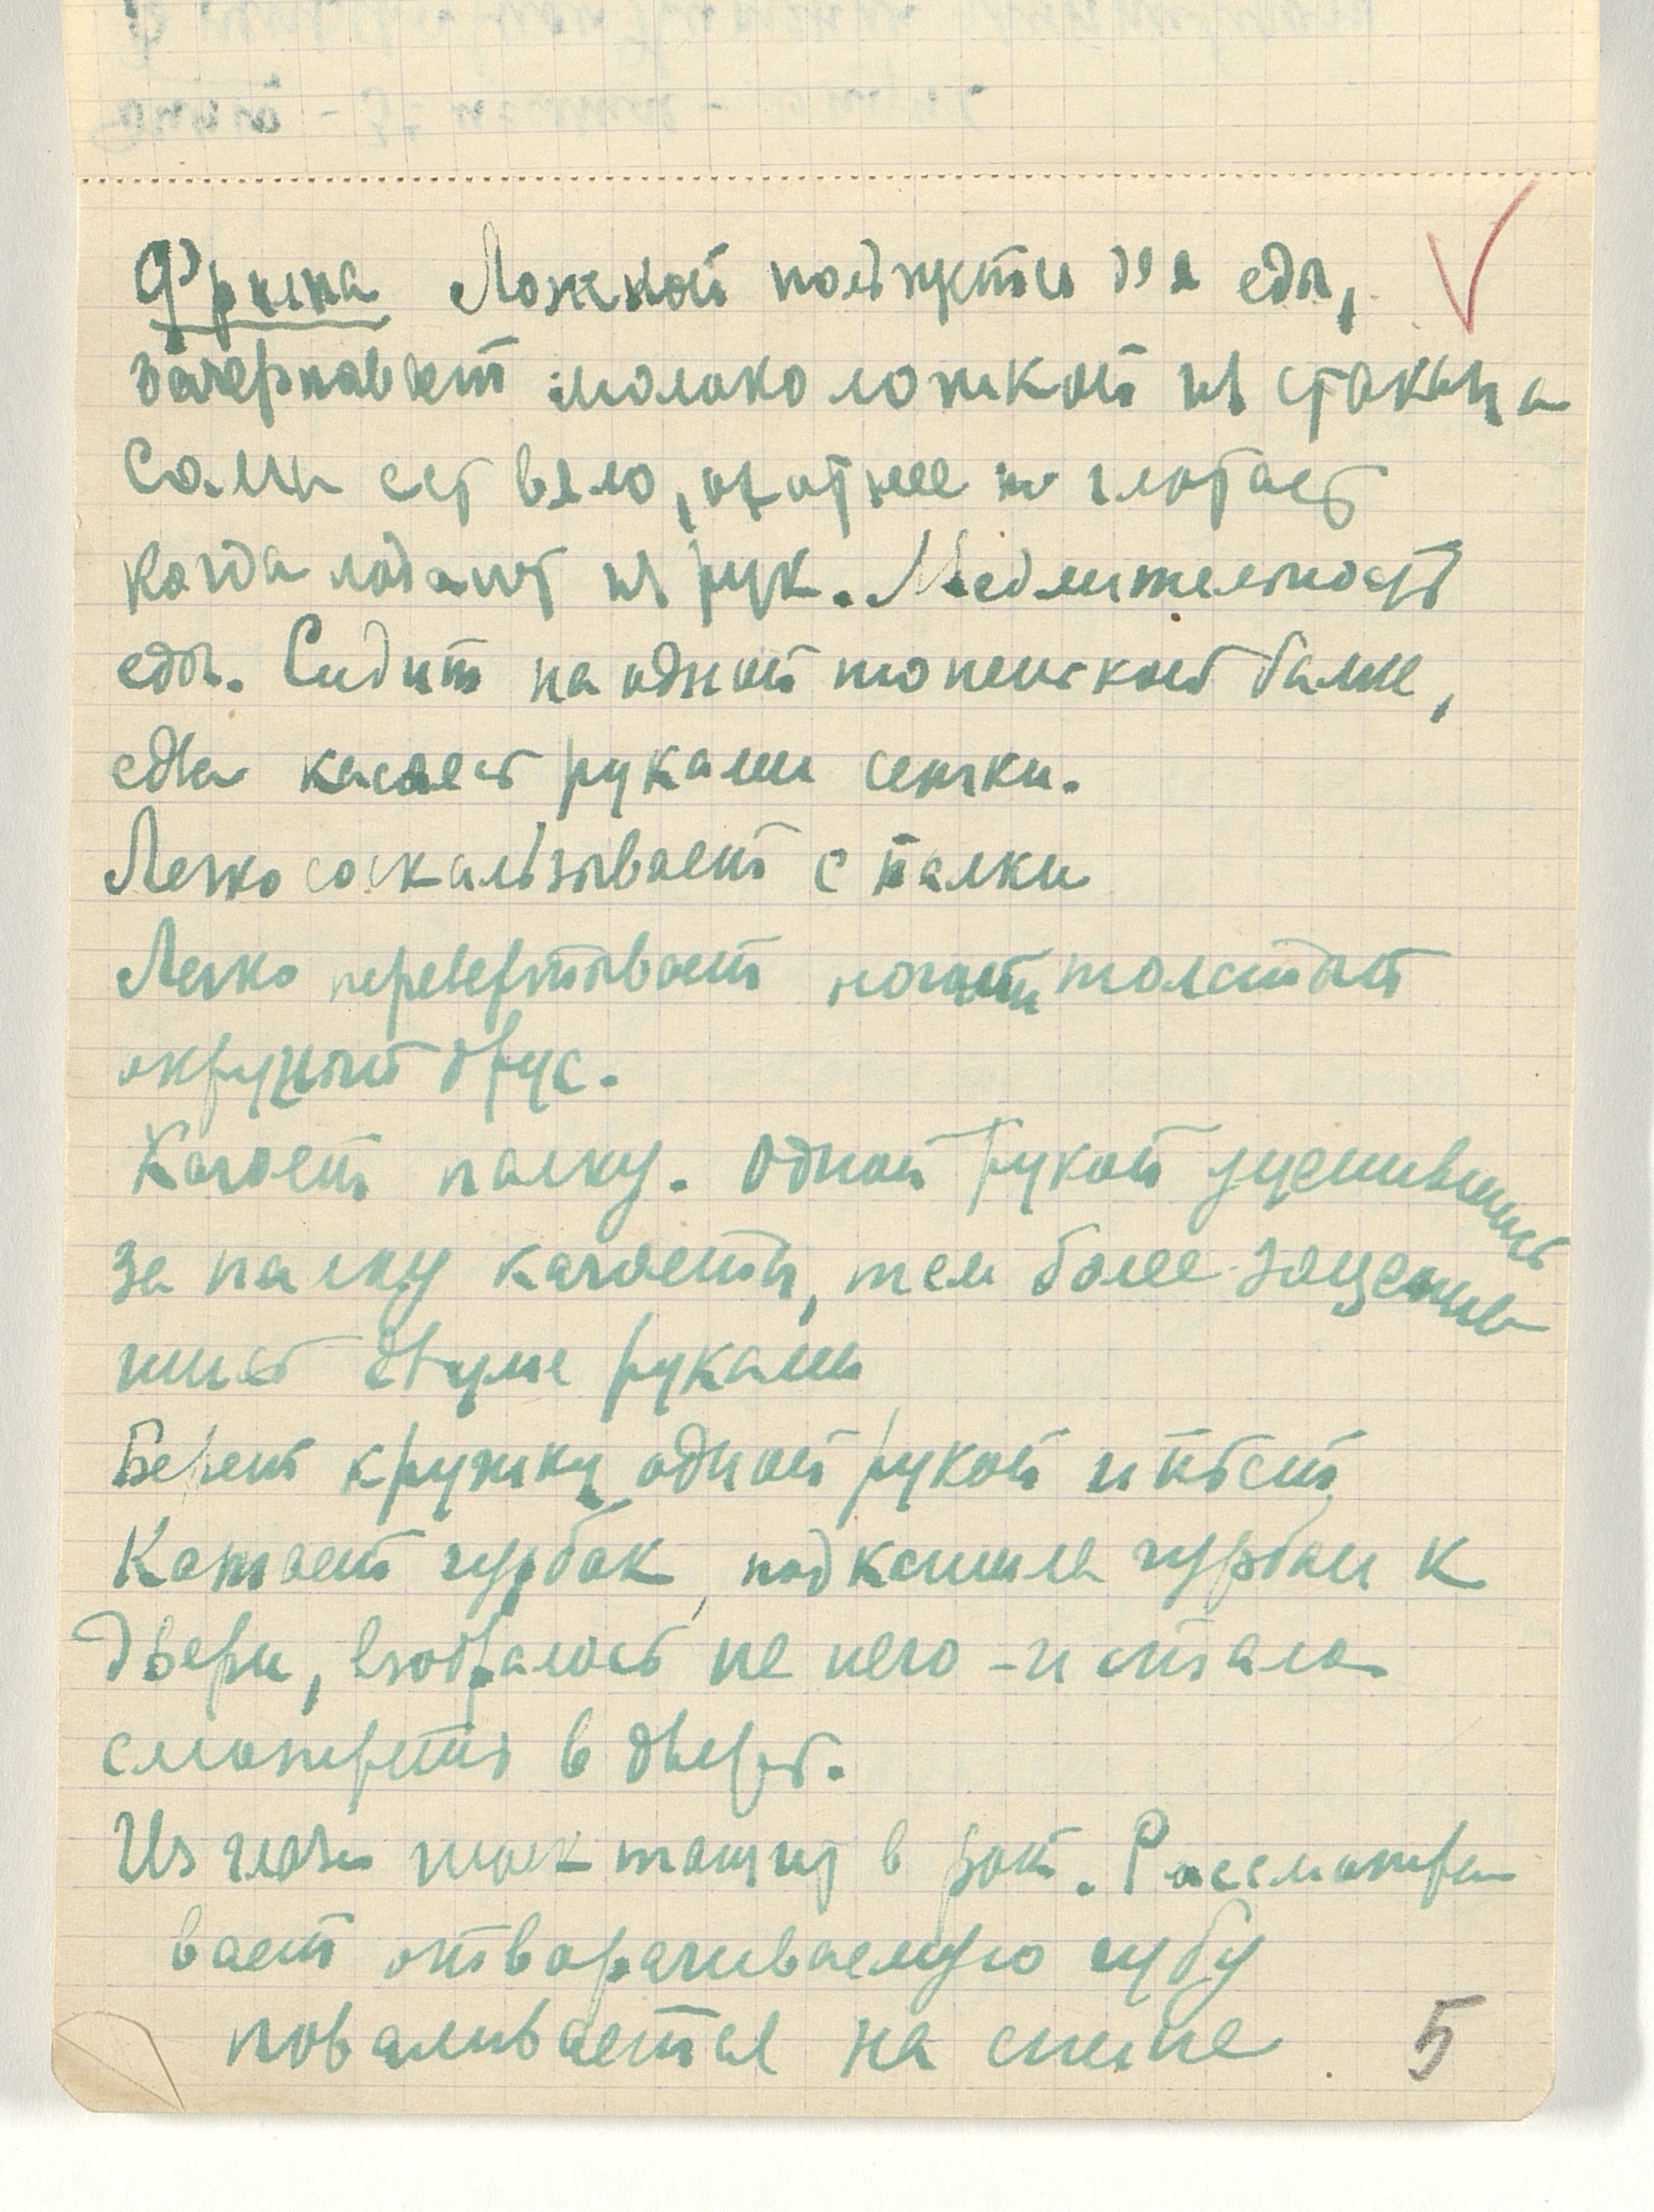 Фрина Ложкой пользуется для еды,
зачерпавает молоко ложкой из стакана
Сама ест вяло, охотнее глотает
когда подают из рук. Медлительность
еды. Сидит на одной тоненькой балке,
едва касаясь руками сетки.
Легко соскальзывает с палки
Легко перевертывает ногами толстый
округлый брус.
Качает палку. Одной рукой уцепившись
за палку качается, тем более зацепив
шись двумя руками
Берет кружку одной рукой и пьет
Катает чурбак, подкатила чурбан к
двери, взобралась на него – и стала
смотреть в дверь.
Из глаз тащит в рот. Рассматри
вает отворачиваемую губу
поваливается на спине
5